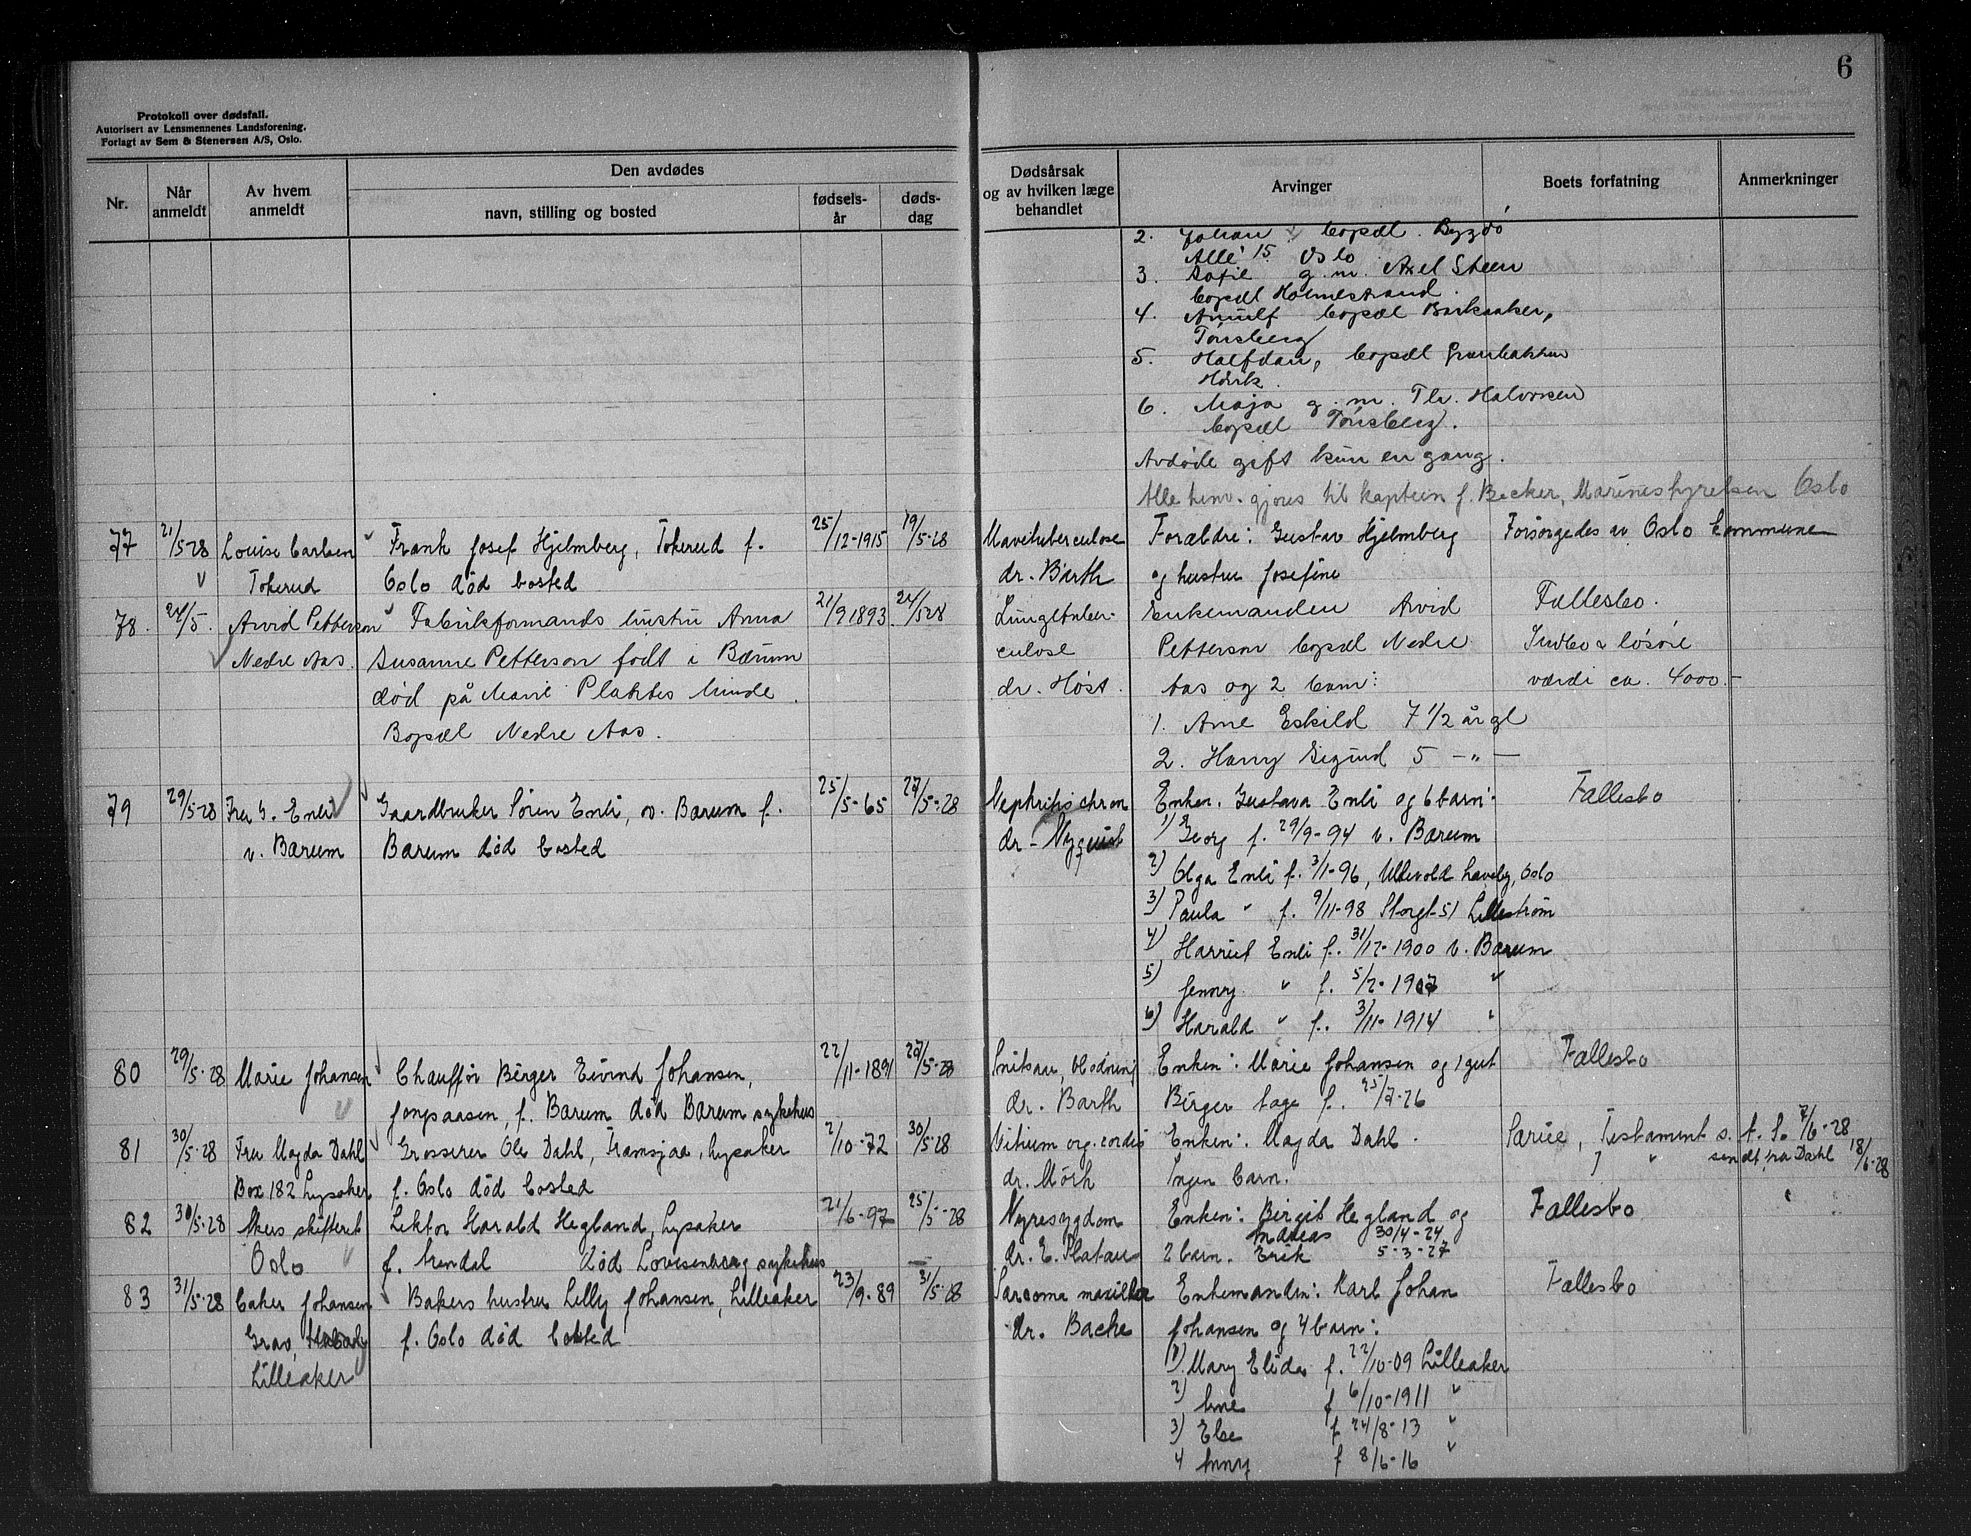 6
Protokoll over dødsfall.
Autorisert av Lensmennenes Landsforening.
Forlagt av Sem & Stenersen A/S, Oslo.
Nr.
Når anmeldt
Av hvem anmeldt
Den avdødes
navn, stilling og bosted
fødsels-år
døds-dag
Dødsårsak og av hvilken læge behandlet
Arvinger
Boets forfatning
Anmerkninger
2. Johan bopæl. Bygdö
Allé 15 Oslo
3. Sofie g.m. Axel Steen
bopæl Holmestrand.
4. Arnulf bopæl Barkaaker,
Tönsberg
5. Halfdan, bopæl
6. Maja g.m. Th. Halvorsen
bopæl Tönsberg.
Avdöde gift kun en gang.
Alle henv. gjöres til kaptein f. Becker, Marinestyrelsen Oslo
77 21/5-28 Louise Carlsen Frank Josef Hjelmberg, Tokerud f. 25/12-1915 19/5-28 Mavetuberculose Forældre: Gustav Hjelmberg Forsorgedes av Oslo kommune
Tokerud Oslo död bosted dr. Barth og hustru Josefine
78. 24/5. Arvid Petterson Fabrikformands hustru Anna 21/9 1893. 24/5 28 Lungetuber- Enkemanden Arvid Fællesbo.
Nedre Aas. Susanne Petterson födt i Bærum culose Petterson bopæl Nedre Indbo & lösöre
död på Marie Plahtes Minde. dr. Höst. Aas og 2 barn: værdi ca. 4000.-
Bopæl Nedre Aas. 1. Arne Eskild 7 1/2 år gl
2. Harry Sigurd 5 -"-
79 29/5-28 Fru G. Enli Gaardbruker Sören Enli, v. Bærum f. 25/5-65 27/5-28 Nephritis chron Enken. Gustava Enli og 6 barn: Fællesbo
v. Bærum Bærum död bosted dr. Nyquist 1) Georg f. 29/9-94 v. Bærum
2) Olga Enli f. 3/1-96, Ullevold haveby, Oslo
3) Paula " f. 9/11-98 Storgt 51 Lilleström
4) Harriet Enli f. 31/12-1900 v. Bærum
5) Jenny " f. 5/2-1907 "
6) Harald " f. 3/11-1914 "
80 29/5-28 Marie Johansen Chaufför Birger Eivind Johansen, 22/11-1891 27/5-28 Snitsaar, blodning Enken: Marie Johansen og 1 gut Fællesbo
Jongsaasen, f. Bærum död Bærum sykehus dr. Barth Birger Aage f. 25/7-26
81 30/5-28 Fru Magda Dahl Grosserer Ole Dahl, Framsjaa, Lysaker 2/10-72 30/5-28 Vitium org. cordis Enken: Magda Dahl. Særeie, Testament s. A. S. 7/6-28
Box 182 Lysaker f. Oslo död bosted dr. Mörk Ingen barn. " sendt fra Dahl 18/6-28
82 30/5-28 Akers skifteret Lektor Harald Hegland, Lysaker 21/6-97 25/5-28 Nyresygdom Enken: Birgit Hegland og Fællesbo
Oslo f. Arendal död Lovisenberg sykehus dr. E. Platau 2 barn. 30/4-24
Erik 5-3-27
83 31/5-28 Baker Johansen Bakers hustru Lilly Johansen, Lilleaker 23/9-89 31/5-28 Sarcoma maxillar Enkemanden: Karl Johan Fællesbo
Grav, f. Oslo död bosted dr. Backe Johansen og 4 barn:
Lilleaker 1) Mary Elida f. 22/10-09 Lilleaker
2) Arne f 6/10-1911 "
3) Else f 24/8-13 "
4 Anny f 8/6-16 "